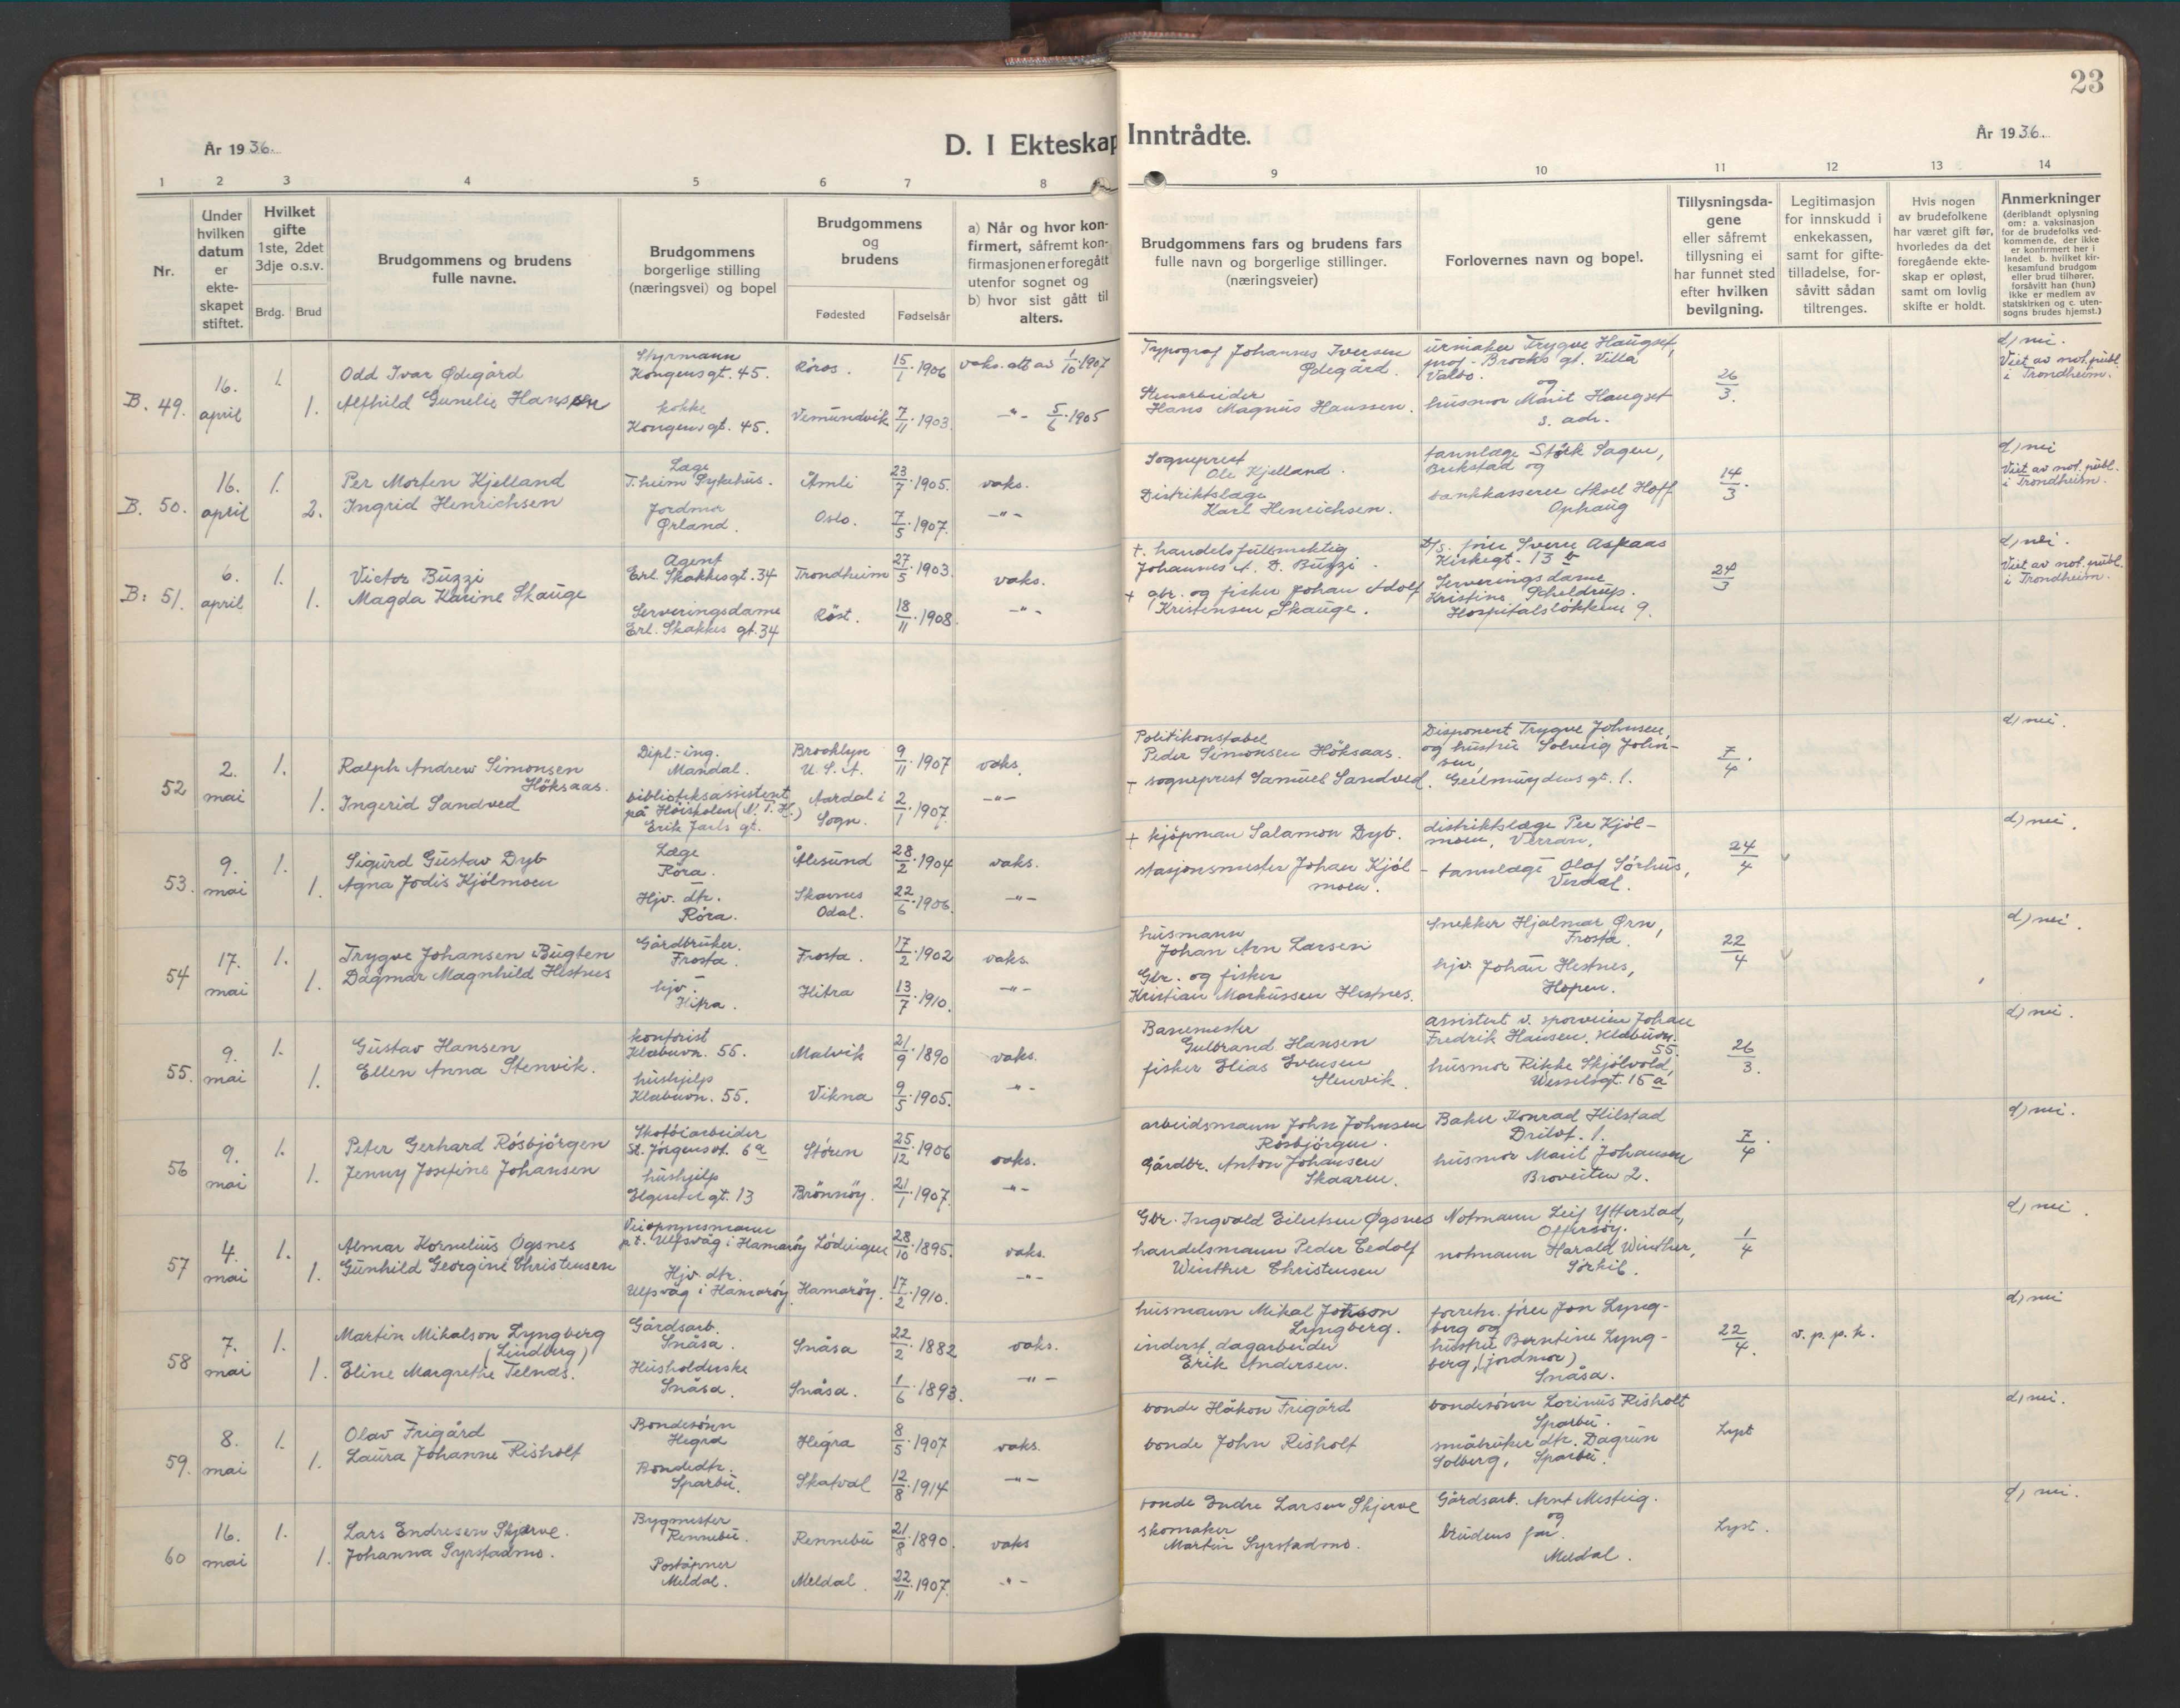 23
År 1936.
D. I Ekteskap Inntrådte.
År 1936.
1 2 3 4 5 6 7 8 9 10 11 12 13 14
Nr.
Under hvilken datum er ekte-skapet stiftet.
Hvilket gifte 1ste, 2det 3dje o.s.v.
Brdg. Brud
Brudgommens og brudens fulle navne.
Brudgommens borgerlige stilling (næringsvei) og bopel
Brudgommens og brudens
Fødested Fødselsår
a) Når og hvor kon-firmert, såfremt kon-firmasjonen er foregått utenfor sognet og
b) hvor sist gått til alters.
Brudgommens fars og brudens fars fulle navn og borgerlige stillinger. (næringsveier)
Forlovernes navn og bopel.
Tillysningsda-gene eller såfremt tillysning ei har funnet sted efter hvilken bevilgning.
Legitimasjon for innskudd i enkekassen, samt for gifte-tilladelse, for-såvitt sådan tiltrenges.
Hvis nogen av brudefolkene har været gift før, hvorledes da det foregående ekte-skap er opløst, samt om lovlig skifte er holdt.
Anmerkninger
(deriblandt oplysning om: a. vaksinasjon for de brudefolks ved-kommende, der ikke er konfirmert her i landet b. hvilket kir-kesamfund brudgom eller brud tilhører, forsåvitt han (hun) ikke er medlem av statskirken og c. uten-sogns brudes hjemst.)
B. 49. 16. april 1. 1.
Odd Ivar Ødegård
Alfhild Gunelie Hanssen
Styrmann Kongensgt. 45.
kokke Kongensgt. 45.
Røros. 15/1 1906 vaks. att av 1/10 1907
Vemundvik 7/11 1903. -"- 5/6 1905
Typograf Johannes Iversen Ødegård.
Stenarbeider Hans Magnus Hanssen.
urmaker Trygve Haugset, prof. Brochs gt. Villa Valbo. og
husmor Marit Haugset s. adr.
26/3.
d) nei. Viet av not. publ. i Trondheim.
B. 50. 16. april 1. 2.
Per Morten Kjelland
Ingrid Henrichsen
Læge T.heim Sykehus.
Jordmor Ørland.
Åmli 23/7 1905. vaks.
Oslo. 7/5 1907. -"-
Sogneprest Ole Kjelland.
Distriktslæge Karl Henrichsen.
tannlæge Sagen, og
bankkasserer Aksel Hoff Ophaug
14/3.
d) nei Viet av not. publ. i Trondheim.
B. 51. 6. april 1. 1.
Victor Buzzi
Magda Karine Skauge
Agent Erl. Skakkesgt. 34
Serveringsdame Erl. Skakkes gt. 34
Trondheim 27/5 1903. vaks.
Røst. 18/11 1908. -"-
+ handelsfullmektig Johannes A. D. Buzzi.
+ gbr. og fisker Johan Adolf Kristensen Skauge.
Sverre Aspaas Kirkegt. 13 b
Serveringsdame Kristine Scheldrup. Hospitalsløkken 9.
24/3
d) nei. Viet av not. publ. i Trondheim.
52 2. mai 1. 1.
Ralph Andrew Simonsen Höksaas.
Ingerid Sandved
Dipl.-ing. Mandal.
biblioteksassistent på Höiskolen (N. T. H.) Erik Jarls gt.
Brooklyn U. S. A. 9/11 1907 vaks.
Aardal i Sogn. 2/1 1907. -"-
Politikonstabel Peder Simonsen Höksaas.
+ sogneprest Samuel Sandved.
Disponent Trygve Johnsen, og hustru Solveig John-sen, Geelmuydens gt. 1.
7/4.
d) nei.
53. 9. mai 1. 1.
Sigurd Gustav Dyb
Agna Jodis Kjölmoen
Læge Röra.
Hjv. dtr. Röra.
Ålesund 28/2 1904 vaks.
Skarnes Odal. 22/6 1906. -"-
+ kjöpman Salamon Dyb.
stasjonsmester Johan Kjöl-moen.
distriktslæge Per Kjöl-moen, Verran.
tannlæge Olaf Sörhus, Verdal.
24/4
d) nei.
54 17. mai 1. 1.
Trygve Johansen Bugten
Dagmar Magnhild Hestnes
Gårdbruker. Frosta.
hjv. Hitra.
Frosta. 17/2 1902 vaks.
Hitra 13/7 1910. -"-
husmann Johan Arn Larsen
Gbr. og fisker Kristian Markussen Hestnes.
Snekker Hjalmar Ørn, Frosta.
hjv. Johan Hestnes, Hopen.
22/4
d) nei.
55. 9. mai 1. 1.
Gustav Hansen
Ellen Anna Stenvik.
kontorist Klæbuvn. 55.
hushjelp Klæbuvn. 55.
Malvik 21/9 1890 vaks.
Vikna 9/5 1905. -"-
Banemester Gulbrand Hansen
fisker Elias Svensen Stenvik.
assistent v. sporveien Johan Fredrik Hansen. Klæbuvn. 55.
husmor Rikke Skjölvold, Wesselsgt. 15 a
26/3.
d) nei.
56 9. mai 1. 1.
Peter Gerhard Rösbjörgen
Jenny Josefine Johansen
Skotöiarbeider St. Jörgensvt. 6a
hushjelp Elgeseter gt. 13
Stören 25/12 1906 vaks.
Brönnöy. 21/1 1907. -"-
arbeidsmann John Johnsen Rösbjörgen.
Gårdbr. Anton Johansen Skaaren.
Baker Konrad Hilstad Drilvt. 1.
husmor Marit Johansen Broveiten 2.
7/4.
d) nei.
57 4. mai 1. 1.
Almar Kornelius Øgsnes
Gunhild Georgine Christensen
Veiopsynsmann p.t. Ulpsvåg i Hamarøy
Hjv. dtr. Ulpsvåg i Hamaröy.
Lödingen 28/10 1895. vaks.
Hamarøy. 17/2 1910. -"-
Gbr. Ingvald Eilertsen Øgsnes
handelsmann Peder Eedolf Winther Christensen
Notmann Leif Ytterstad, Offersöy.
notmann Harald Winther, Sörkil.
1/4
d) nei.
58 7. mai 1. 1.
Martin Mikalson Lyngberg (Lindberg)
Eline Margrethe Telnes.
Gårdsarb. Snåsa.
Husholderske Snåsa.
Snåsa 22/2 1882 vaks.
Snåsa. 1/6 1893. -"-
husmann Mikal Jonson Lyngberg.
inderst. dagarbeider Erik Andersen.
forretn. förer Jon Lyng-berg og
hustru Berntine Lyng-berg, (jordmor) Snåsa.
22/4. v. p. p. k.
d) nei
59. 8. mai 1. 1.
Olav Frigård
Laura Johanne Risholt
Bondesönn Hegra
Bondedtr. Sparbu.
Hegra 8/5 1907 vaks.
Skatval 12/8 1914 -"-
bonde Håkon Frigård
bonde John Risholt
bondesönn Lorinus Risholt Sparbu.
småbruker dtr. Dagrun Solberg, Sparbu.
Lyst
d) nei.
60 16. mai 1. 1.
Lars Endresen Skjerve.
Johanna Syrstadmo.
Bygmester Rennebu.
Poståpner Meldal.
Rennebu 21/8 1890. vaks
Meldal. 22/11 1907. -"-
bonde Endre Larsen Skjerve
skomaker Martin Syrstadmo.
Gårdsarb. Arnt Mesteig. og
brudens far. Meldal.
Lyst.
d) nei.